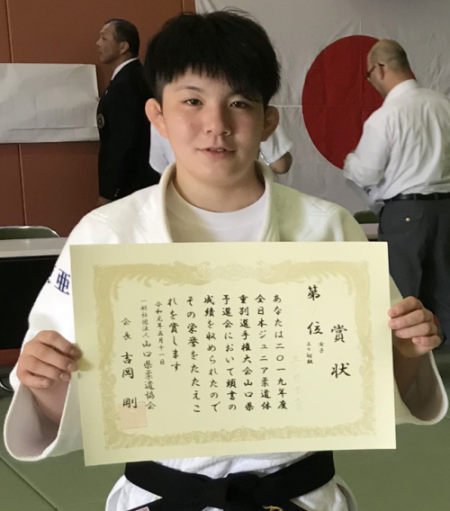 賞状
第 位
女子
あなたは二〇一九年度
全日本ジュニア柔道体
重別選手権大会山口県
予選会において頭書の
成績を収められたので
その栄誉をたたえこ
れを賞します
令和元年五月十一日
一般社団法人山口県柔道協会
会長 吉岡 剛
亜